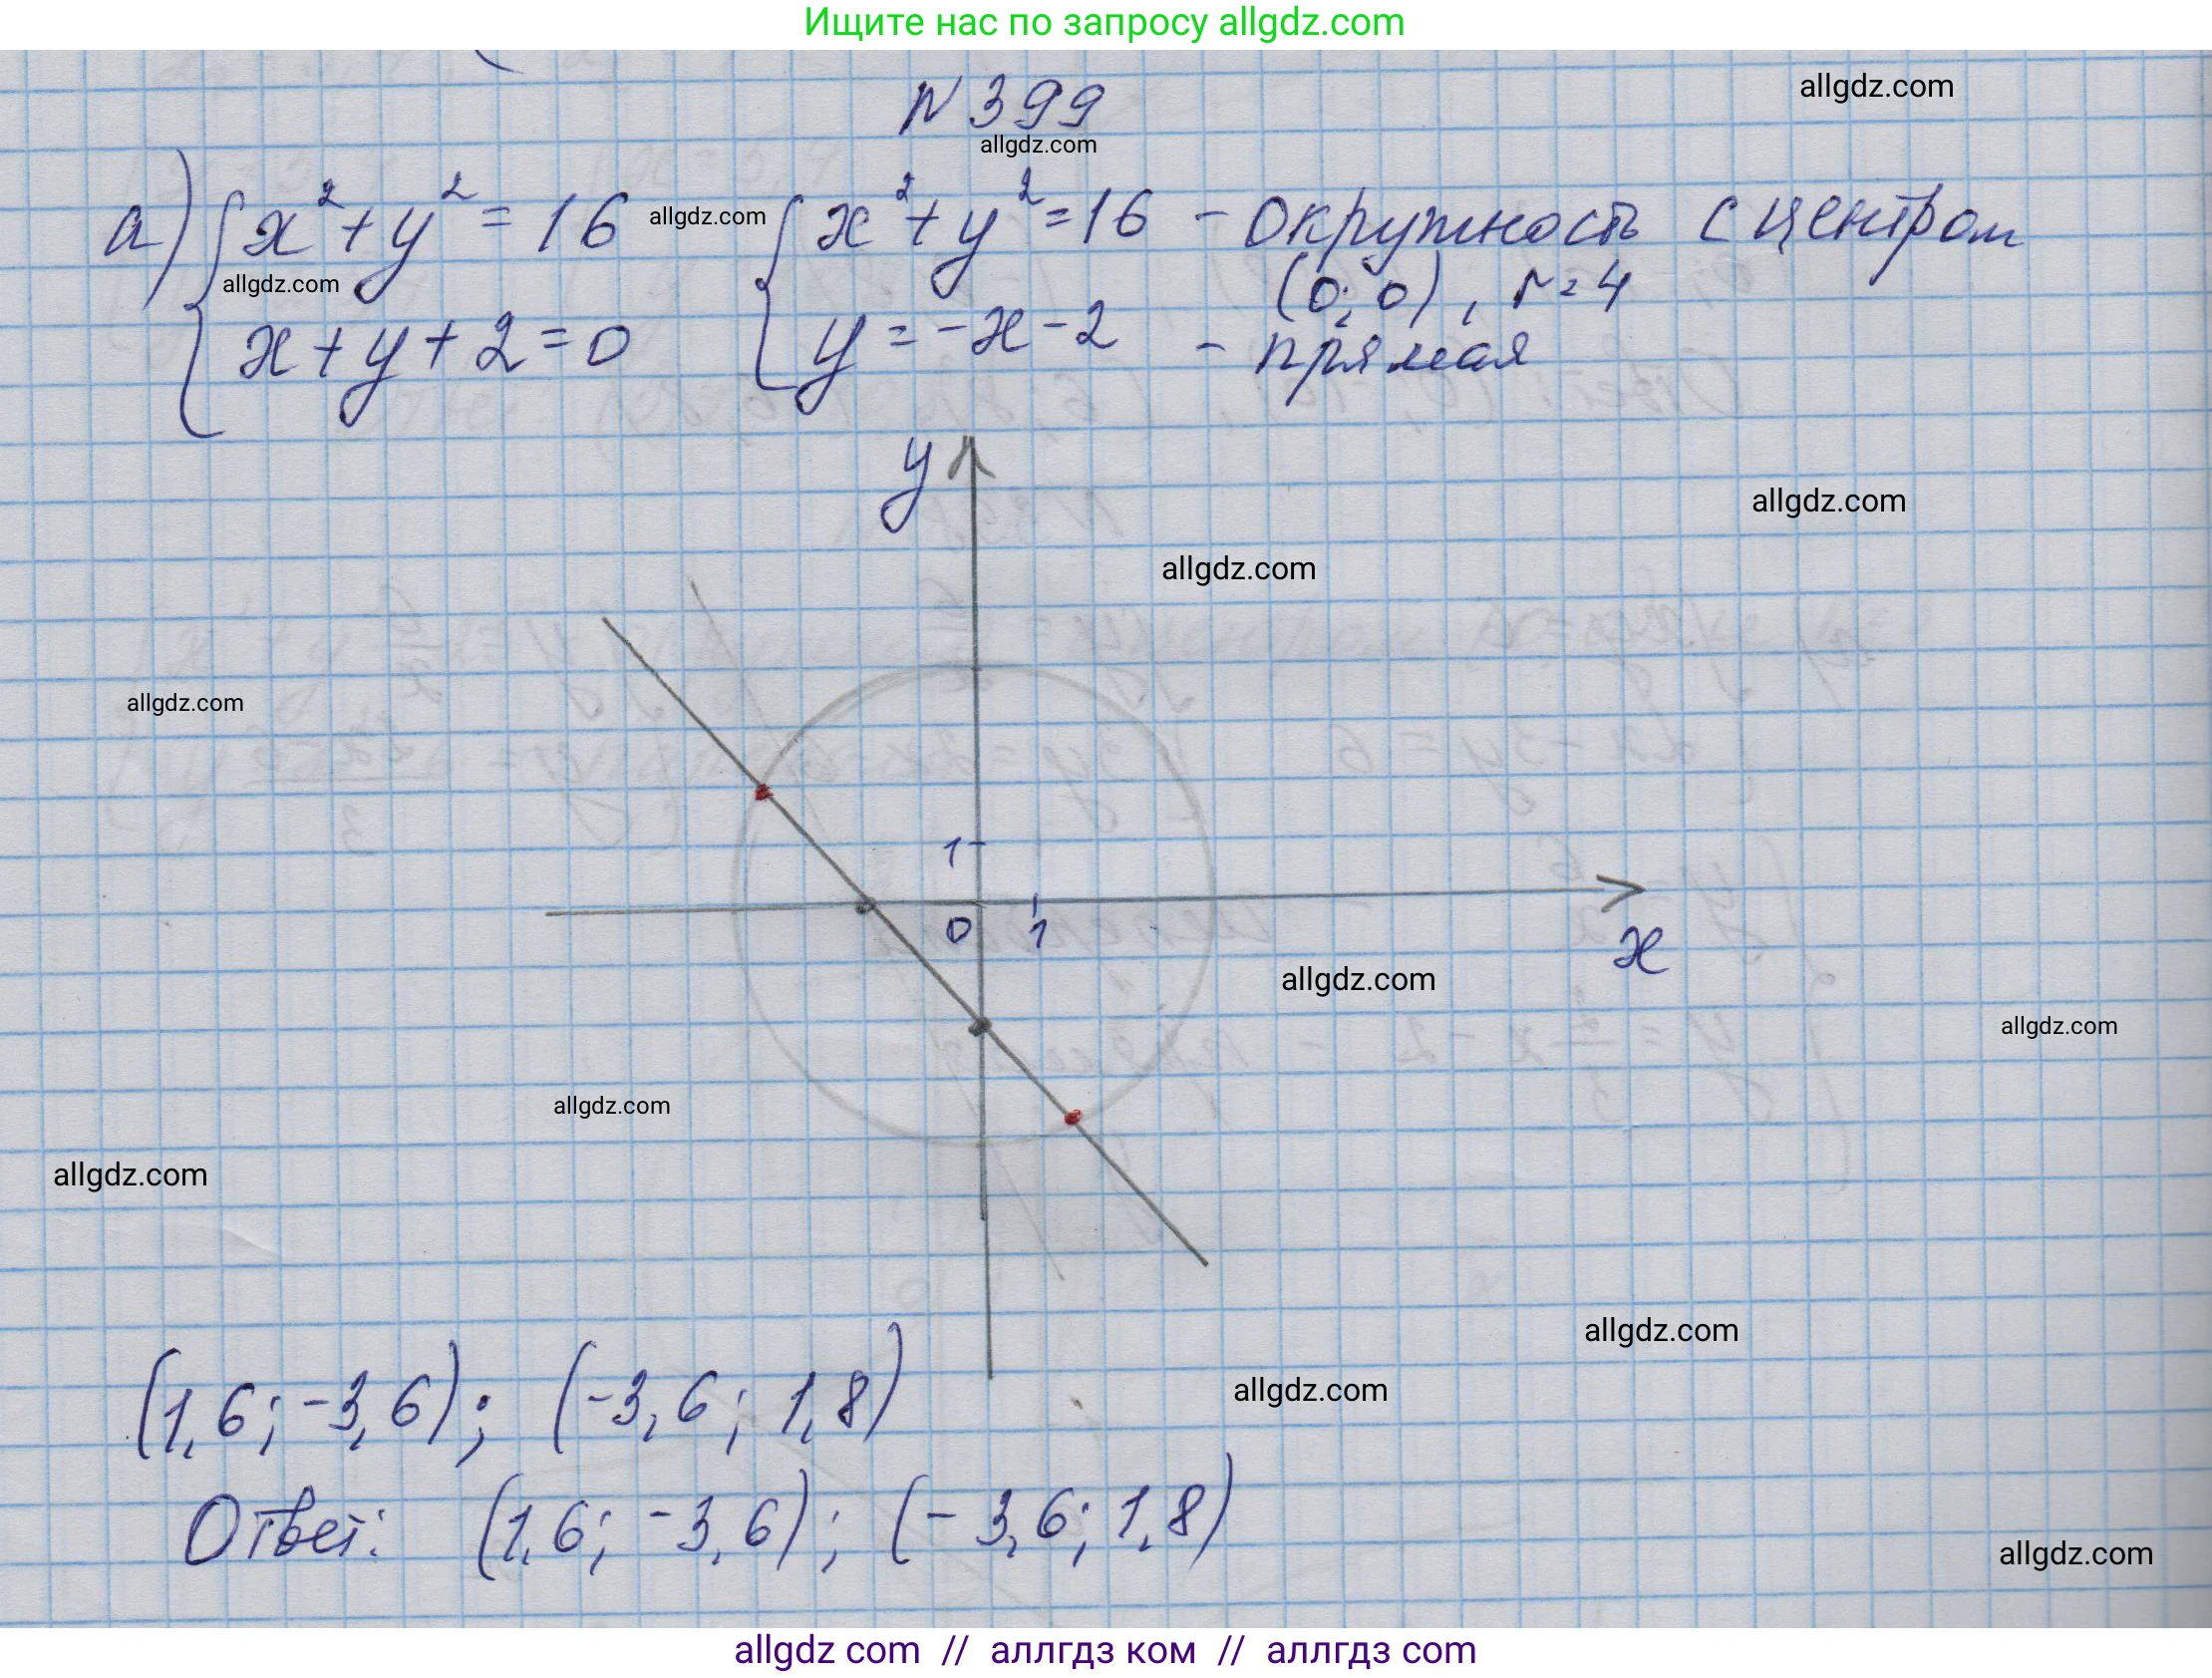 Ищите нас по запросу allgdz.com
N 399
allgdz.com
allgdz.com
а) { x² + y² = 16 allgdz.com { x² + y² = 16 - окружность с центром
allgdz.com
(0; 0), r = 4
x + y + 2 = 0 y = -x - 2 - прямая
y
allgdz.com
allgdz.com
allgdz.com
1
0 1
x
allgdz.com
allgdz.com
allgdz.com
allgdz.com
allgdz.com
allgdz.com
(1,6; -3,6); (-3,6; 1,8)
Ответ: (1,6; -3,6); (-3,6; 1,8)
allgdz.com
allgdz com // аллгдз ком // аллгдз com